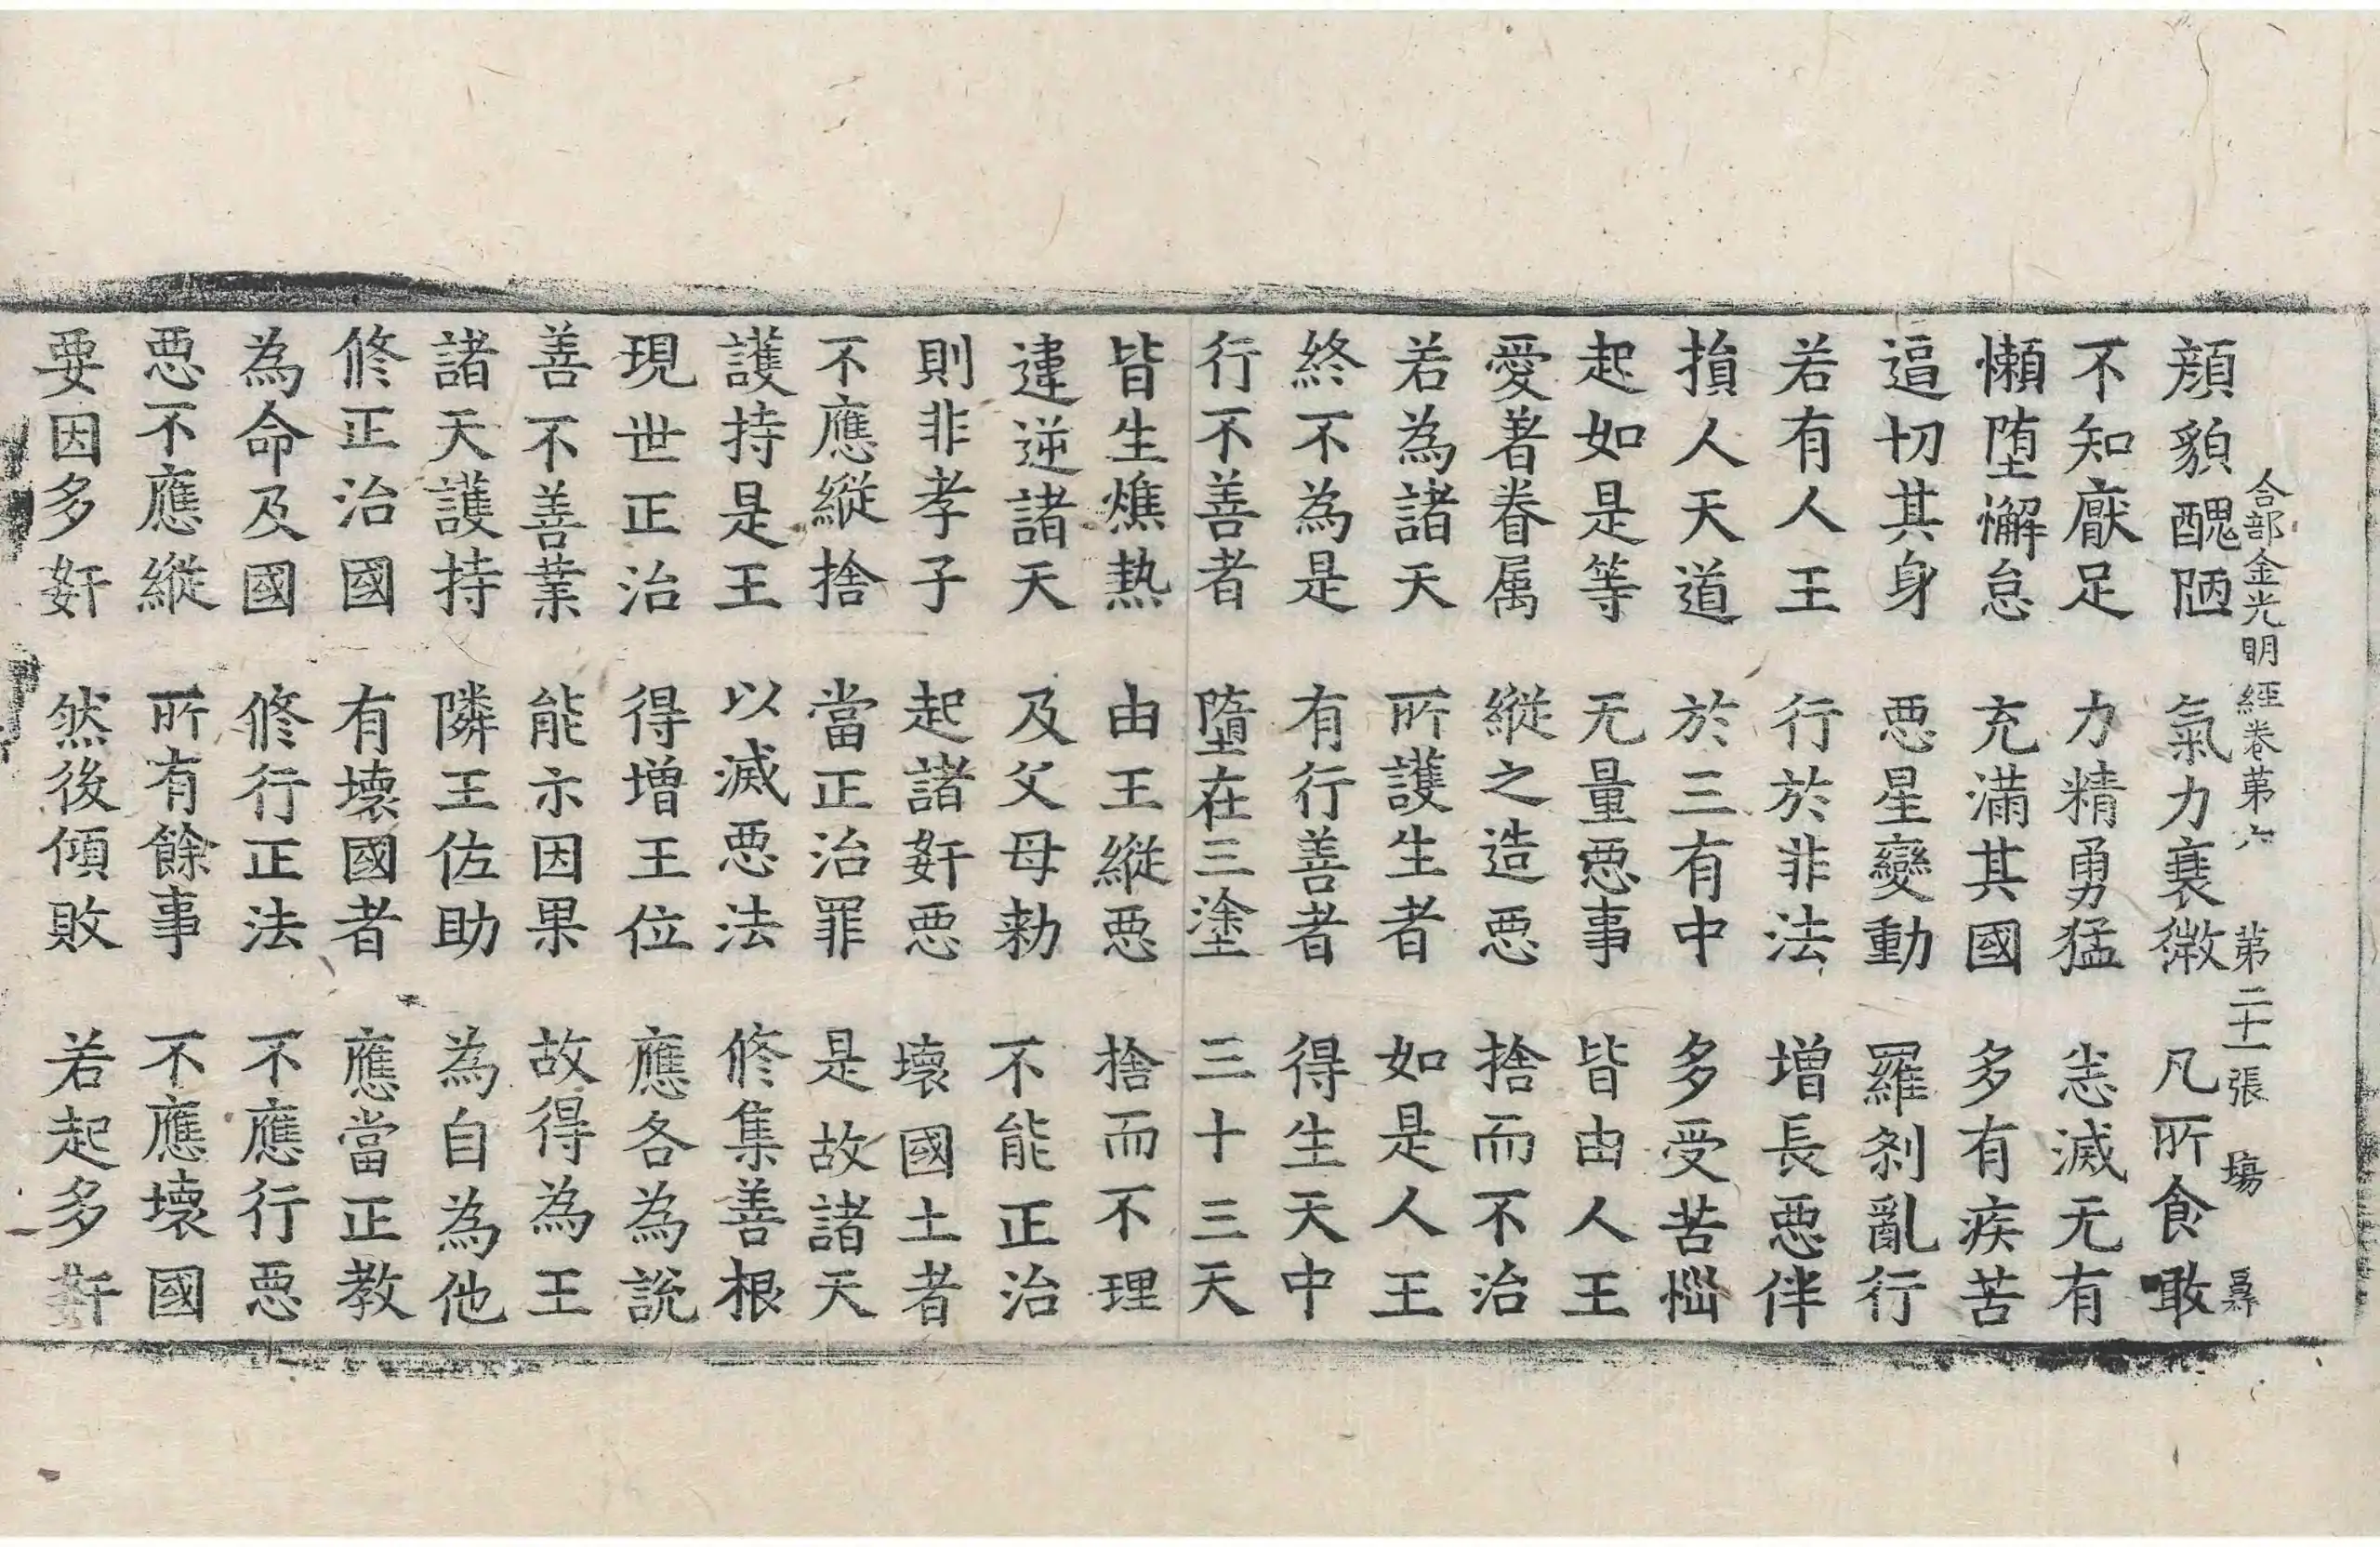 合部金光明經卷苐六　苐二十一張　塲
顔貌醜陋　氣力衰微　凡所食噉
不知厭足　力精勇猛　恙滅无有
懶堕懈怠　充滿其國　多有疾苦
逼切其身　惡星變動　羅刹亂行
若有人王　行於非法　增長惡伴
損人天道　於三有中　多受苦惱
起如是等　无量惡事　皆由人王
愛著眷属　縱之造惡　捨而不治
若為諸天　所護生者　如是人王
終不為是　有行善者　得生天中
行不善者　墮在三塗　三十三天
皆生燋热　由王縱惡　捨而不理
違逆諸天　及父母勑　不能正治
則非孝子　起諸姧惡　壞國土者
不應縱捨　當正治罪　是故諸天
護持是王　以滅惡法　修集善根
現世正治　得增王位　應各為說
善不善業　能示因果　故得為王
諸天護持　隣王佐助　為自為他
修正治國　有壞國者　應當正教
為命及國　修行正法　不應行惡
惡不應縱　所有餘事　不應壞國
要因多姧　然後傾敗　若起多姧